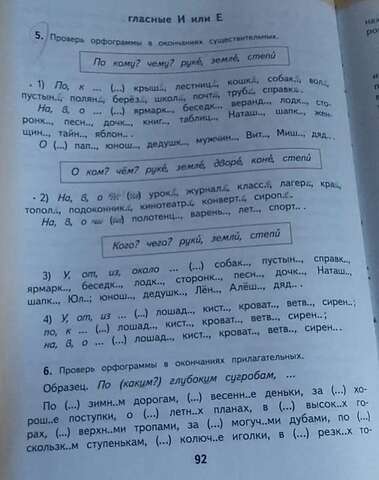 гласные И или Е
5. Проверь орфограммы в окончаниях существительных.
По кому? чему? руке́, земле́, степи́
1) По, к ... (...) крыш.., лестниц.., кошк.., собак.., вол..,
пустын.., полян.., берёз.., школ.., почт.., труб.., справк...
На, в, о ... (...) ярмарк.., беседк.., веранд.., лодк.., сто-
ронк.., песн.., дочк.., книг.., таблиц.., Наташ.., шапк.., жен-
щин.., тайн.., яблон...
О (...) пап.., юнош.., дедушк.., мужчин.., Вит.., Миш.., дяд...
О ком? чём? руке́, земле́, дворе́, коне́, степи́
2) На, в, о (...) урок.., журнал.., класс.., лагер.., кра..,
топол.., подоконник.., кинотеатр.., конверт.., сироп...
На, в, о (...) полотенц.., варень.., лет.., спорт...
Кого? чего? руки́, земли́, степи́
3) У, от, из, около ... (...) собак.., пустын.., справк..,
ярмарк.., беседк.., лодк.., сторонк.., песн.., дочк.., Наташ..,
шапк.., Юл..; юнош.., дедушк.., Лён.., Алёш.., дяд...
4) У, от, из ... (...) лошад.., кист.., кроват.., ветв.., сирен..;
по, к ... (...) лошад.., кист.., кроват.., ветв.., сирен..;
на, в, о ... (...) лошад.., кист.., кроват.., ветв.., сирен...
6. Проверь орфограммы в окончаниях прилагательных.
Образец. По (каким?) глубоким сугробам, ...
По (...) зимн..м дорогам, (...) весенн..е деньки, за (...) хо-
рош..е поступки, о (...) летн..х планах, в (...) высок..х го-
рах, (...) верхн..ми тропами, за (...) могуч..ми дубами, по (...)
скользк..м ступенькам, (...) колюч..е иголки, в (...) резк..х то-
92